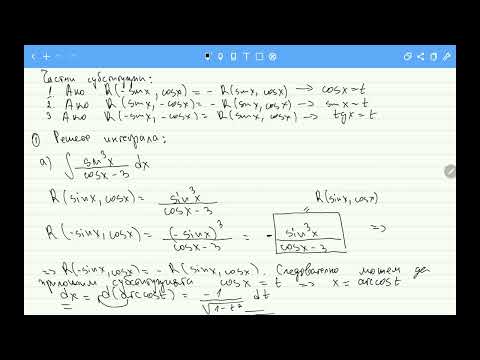 Частни субституции:
1. Ако R(-sinx, cosx) = - R(sinx, cosx) → cosx = t
2. Ако R(sinx, -cosx) = - R(sinx, cosx) → sinx = t
3. Ако R(-sinx, -cosx) = R(sinx, cosx) → tgx = t
① Решете интеграла:
а) ∫ sin³x / (cosx - 3) dx
R(sinx, cosx) = sin³x / (cosx - 3)
R(sinx, cosx)
R(-sinx, cosx) = (-sinx)³ / (cosx - 3) = - sin³x / (cosx - 3) ⇒
⇒ R(-sinx, cosx) = - R(sinx, cosx). Следователно можем да
приложим субституцията cosx = t ⇒ x = arccost
dx = d(arccost) = -1 / √(1-t²) dt